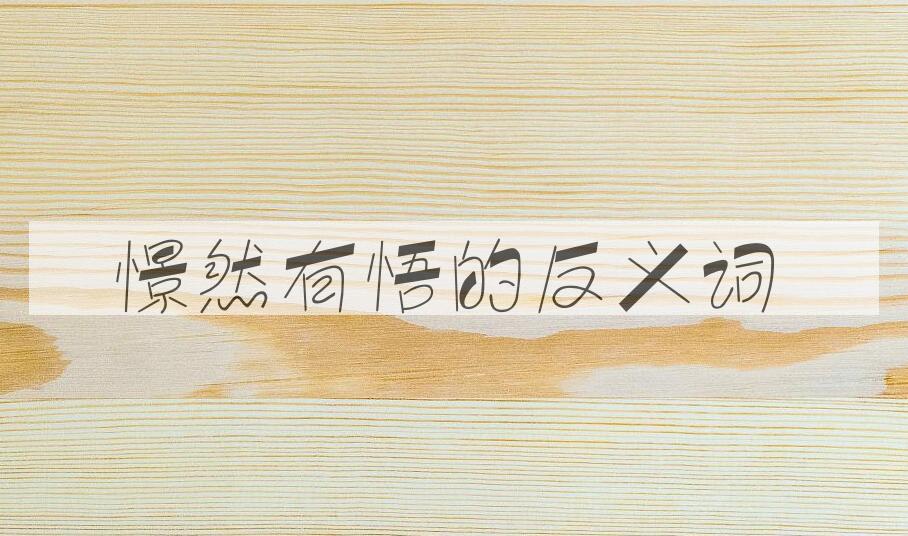 憬然有悟的反义词